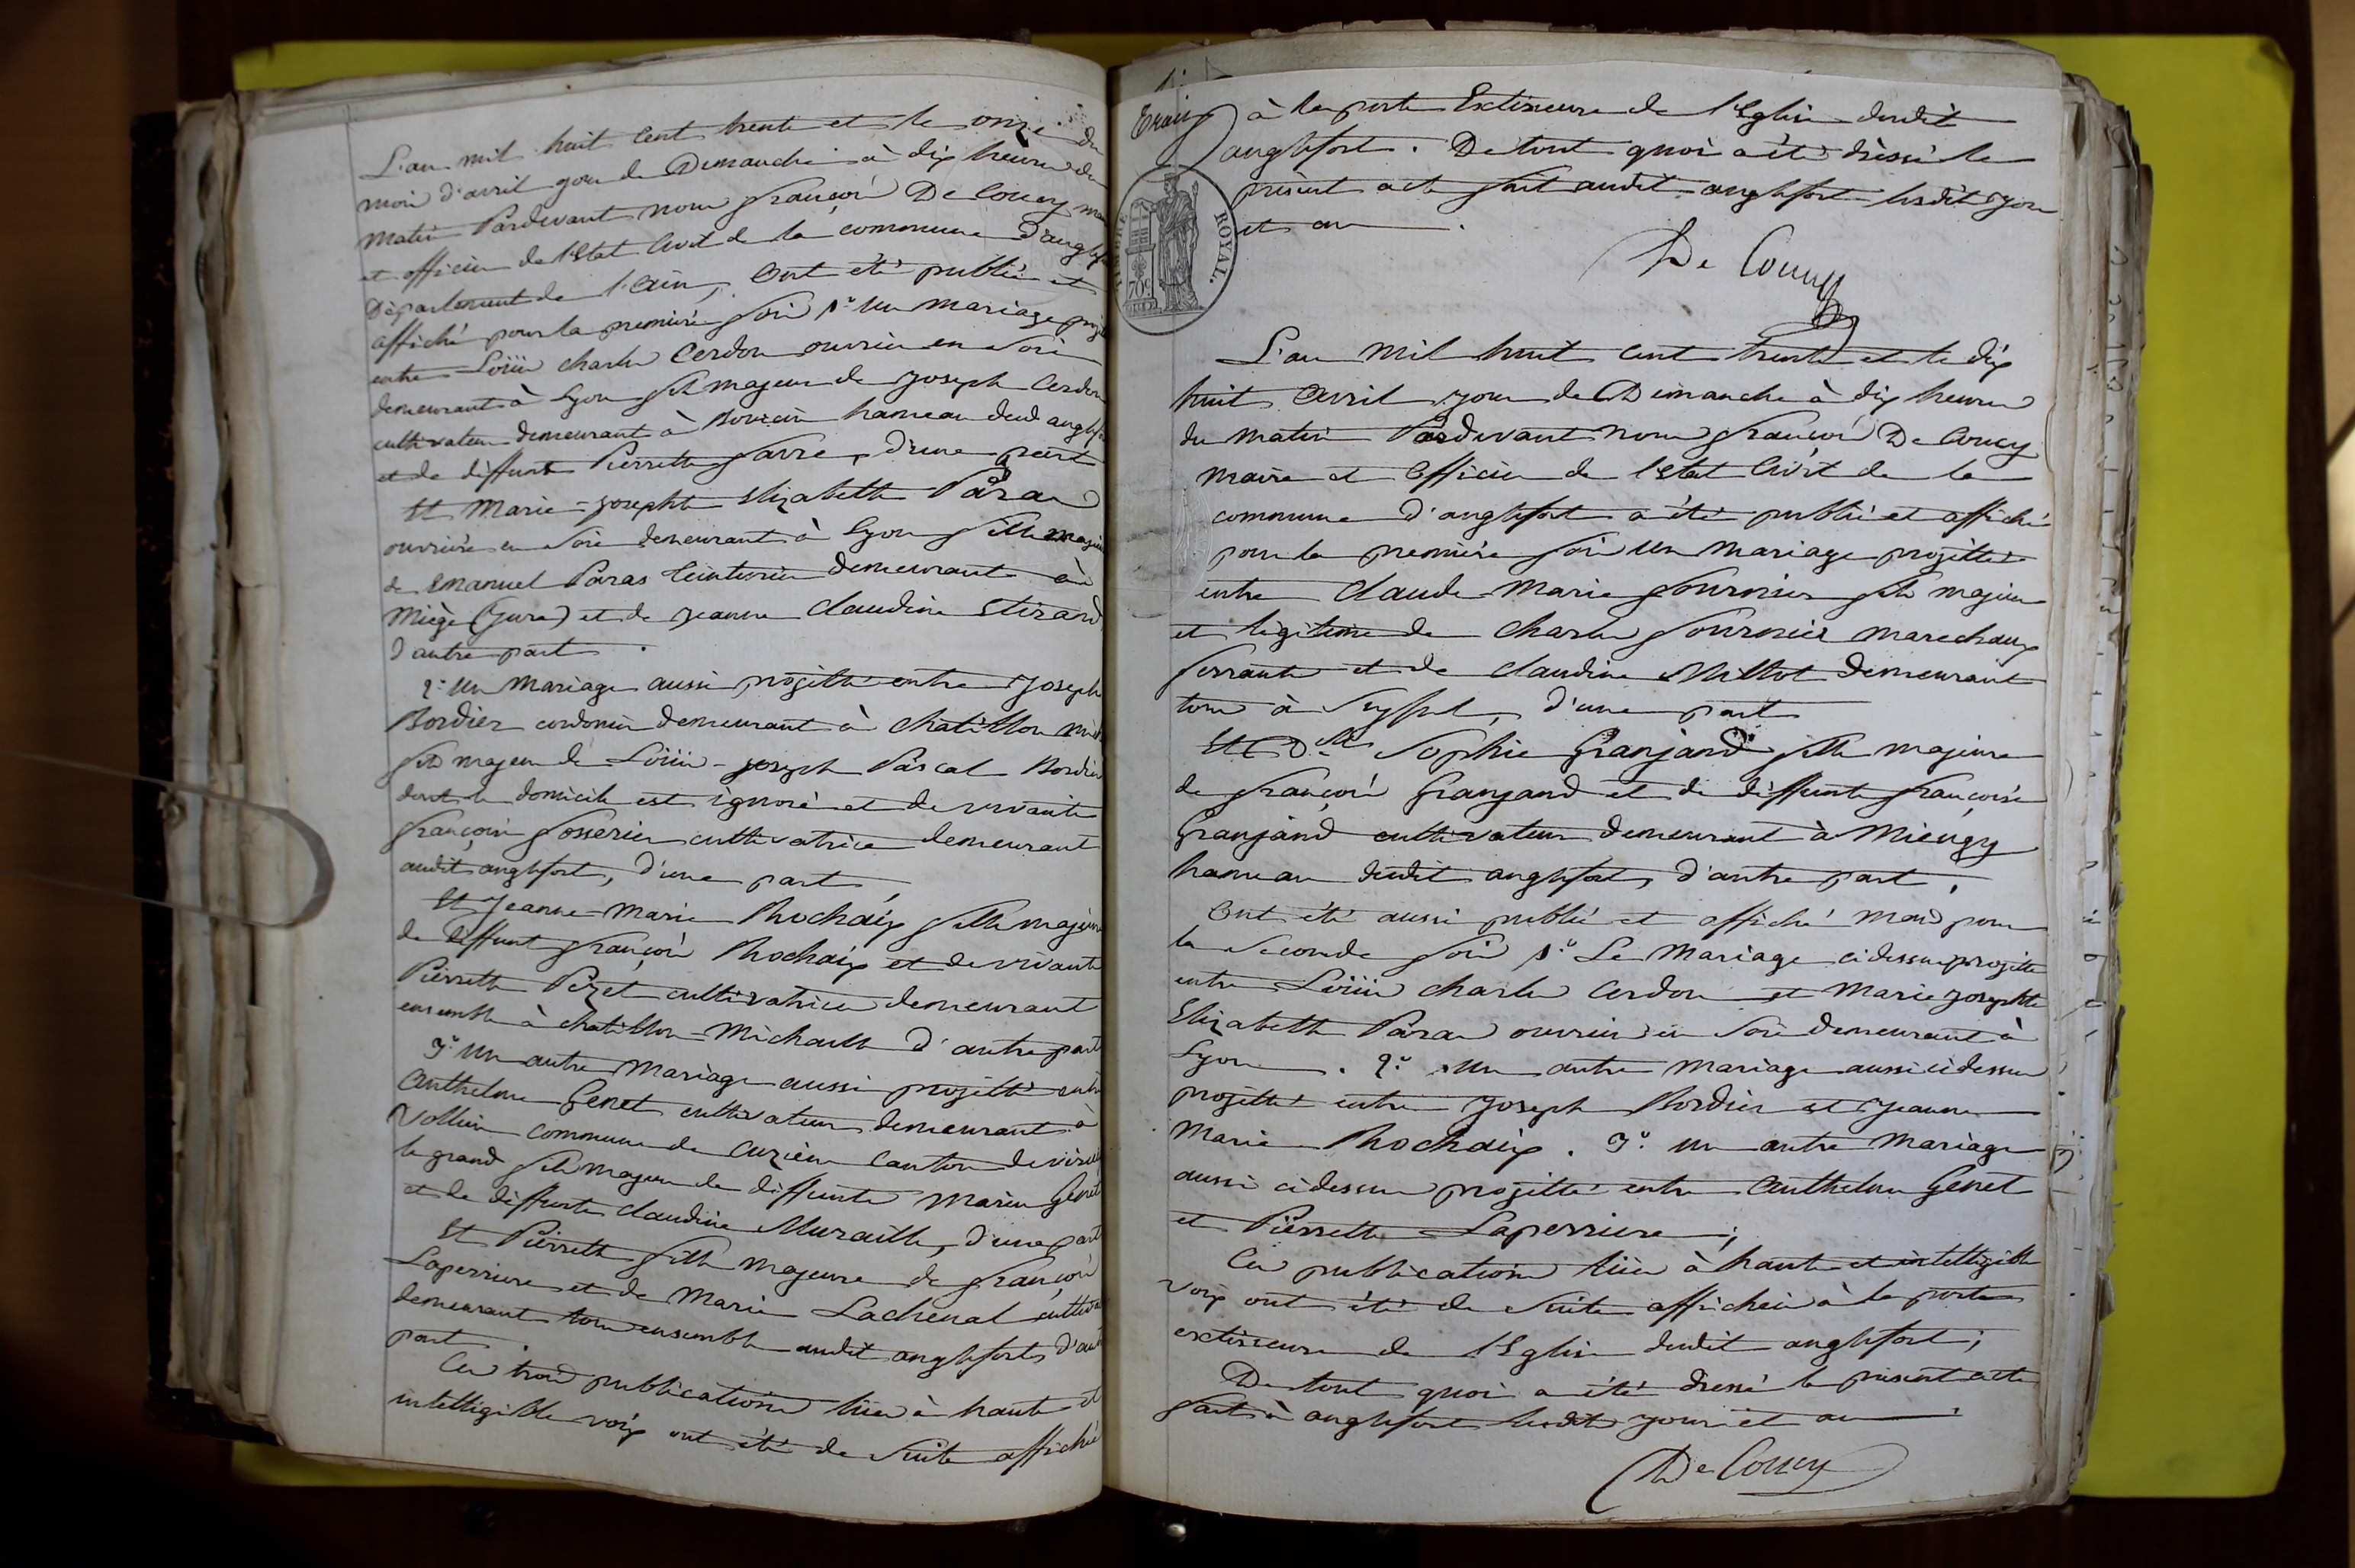 L'an mil huit cent trente et le onze du
mois d'avril jour de Dimanche à dix heures du
matin Pardevant nous françois De Coucy
et officier de l'Etat Civil de la commune d'anglefort
Département de l'ain, Ont été publié et
affiché pour la première fois 1° Un mariage
entre Loüis charles Cerdon ouvrier en Soie
demeurant à Lyon fils majeur de Joseph Cerdon
cultivateur demeurant à hameau dud anglefort
et de deffunte Pierrette favre, d'une part
Et Marie-josephte Elizabeth Paras
ouvrière en Soie demeurant à Lyon fille
de Emanuel Paras teinturier demeurant à
Miège (Jura) et de jeanne claudine
d'autre part.
2° Un Mariage aussi projetté entre Joseph
Bordier cordonnier demeurant à chatillon
fils majeur de Loüis-joseph Pascal Bordier
dont le domicile est ignoré et de vivante
françoise fosserier cultivatrice demeurant
audit anglefort, d'une part,
Et Jeanne-Marie Rhochaix fille majeure
de deffunt françois Rhochaix et de vivante
Pierrette Pézet cultivatrice demeurant
ensemble à chatillon-Michaille d'autre part
3° Un autre Mariage aussi projetté entre
anthelme Genet cultivateur demeurant à
Vollien commune de Cuzieu Canton de
le grand fils majeur de deffunte Marie Genet
et de deffunte claudine Muraille, d'une part
Et Pierrette fille majeure de françois
Laperriere et de Marie Lachenal
demeurant tous ensemble audit anglefort,
part.
Ces trois publications lües à haute et
intelligible voix ont été de Suite affiché
à la porte Extérieure de l'Eglise dudit
anglefort. De tout quoi a été dressé le
présent acte fait audit anglefort lesdit jour
et an.
ROYAL.
70c
De Coucy
L'an Mil huit cent trente et le dix
huit avril jour de Dimanche à dix heures
du matin Pardevant nous françois De Coucy
maire et Officier de l'Etat Civil de la
commune d'anglefort a été publié et affiché
pour la première fois Un Mariage projetté
entre claude-Marie fournier fils majeur
et légitime de charles fournier marechaux
ferrante et de claudine Millot demeurant
tous à Seyssel, d'une part
Et Dlle Sophie Granjand fille majeure
de françois Granjand et de deffunte françoise
Granjand cultivateur demeurant à Mieugy
hameau dudit anglefort, d'autre part.
Ont été aussi publié et affiché mais pour
la Seconde fois 1° Le Mariage cidessus projetté
entre Loüis charles Cerdon et Marie josephte
Elizabeth Paras ouvriers en Soie demeurant à
Lyon. 2° Un autre mariage aussi cidessus
projetté entre Joseph Bordier et Jeanne
Marie Rhochaix. 3° Un autre Mariage
aussi cidessus projetté entre anthelme Genet
et Pierrette Laperriere;
Ces publications lües à haute et intelligible
voix ont été de Suite affichées à la porte
extérieure de l'Eglise dudit anglefort;
De tout quoi a été dressé le présent acte
fait à anglefort lesdit jour et an.
De Coucy